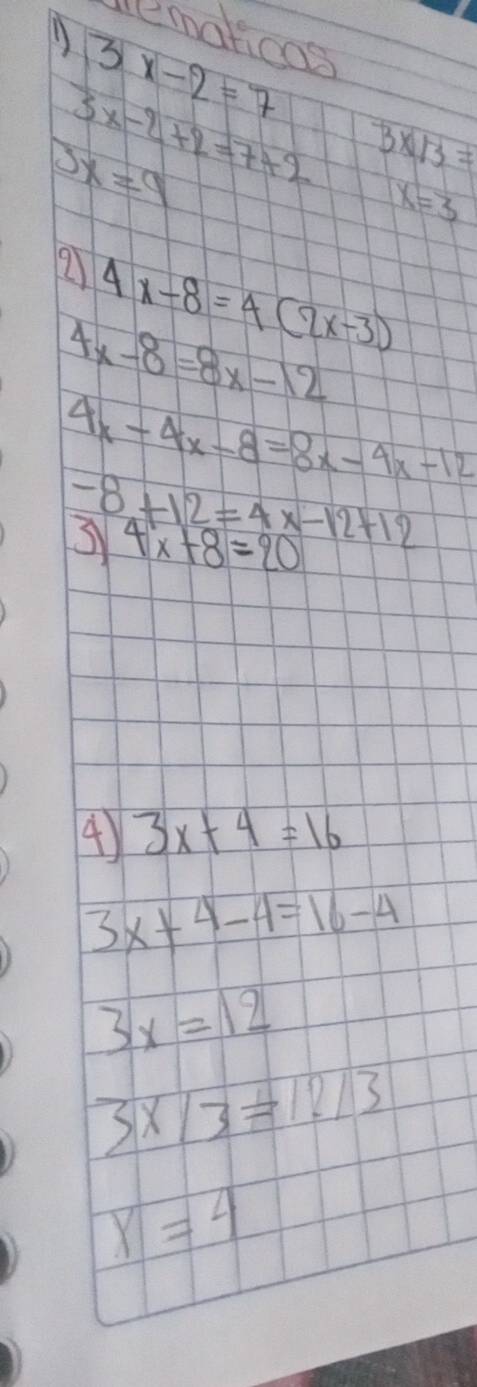 1) 3x-2=7
3x-2+2=7+2
3x=9
3x/3=
x=3
2) 4x-8=4(2x-3)
4x-8=8x-12
4x-4x-8=8x-4x-12
-8+12=4x-12+12
3) 4x+8=20
4) 3x+4=16
3x+4-4=16-4
3x=12
3x/3=12/3
x=4